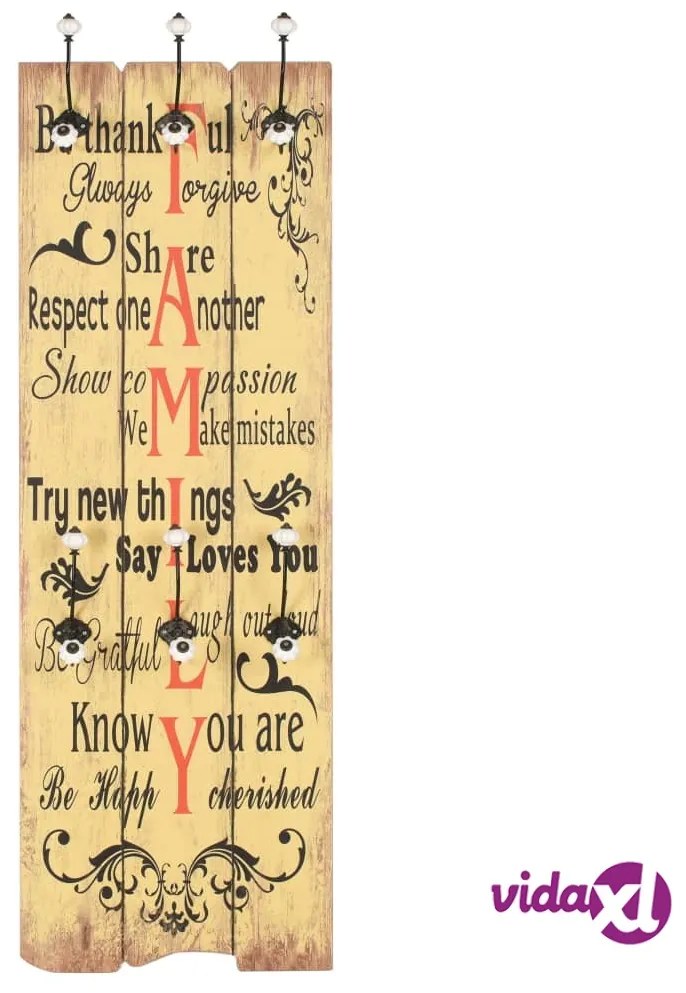 Be thankFul
Glways Forgive
Share
Respect one Another
Show coMpassion
We Make mistakes
Try new things
Say I Loves You
Laugh out loud
Be Gratful
Know You are
Be HappY cherished
vidaXL